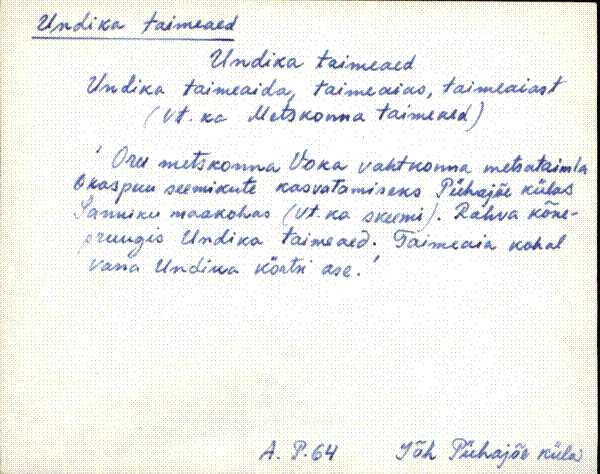 Undika taimeaed
Undika taimeaed
Undika taimeaida, taimeaias, taimeaiast
(Vt. ka Metskonna taimeaed)
' Oru metskonna Voka vahtkonna metsataimla
Okaspuu seemikute kasvatamiseks Pühajõe külas
Sanniku maakohas (vt. ka skeemi). Rahva kõne-
pruugis Undika taimeaed. Taimeaia kohal
vana Undika kõrtsi ase.'
A. P. 64 Jõh Pühajõe küla